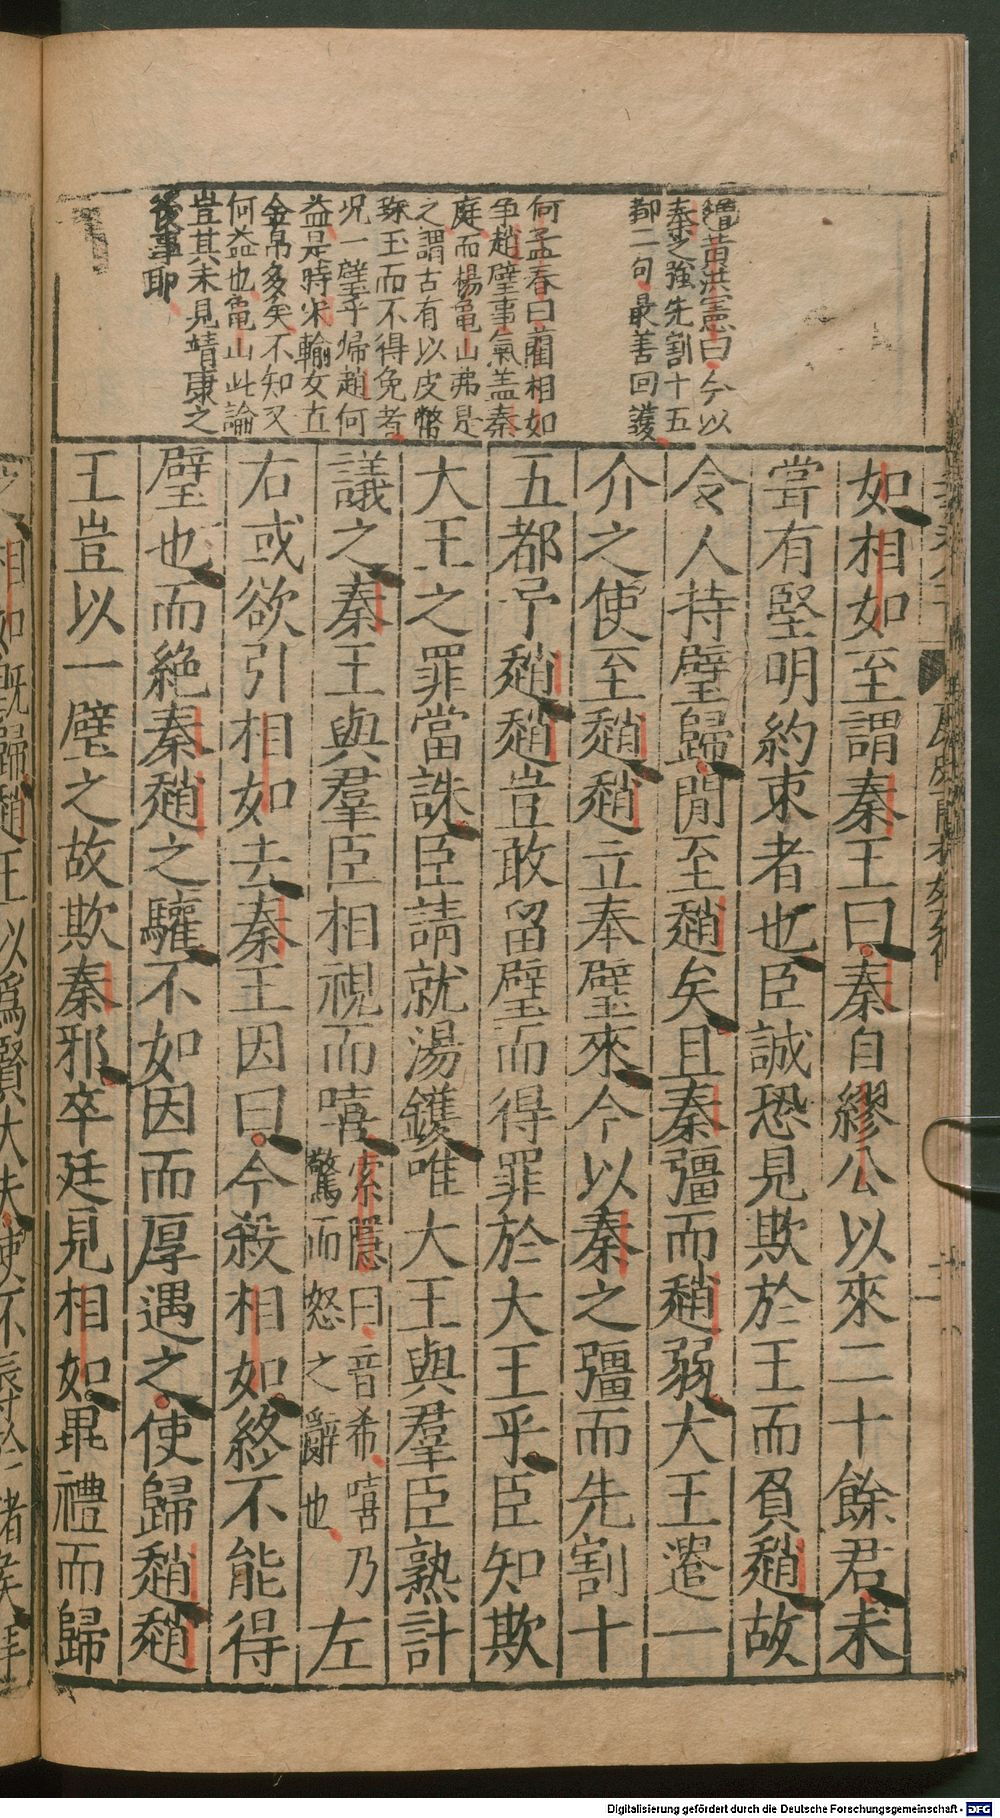 黃洪憲曰今以
秦之強先割十五
都二句最善回護
何孟春曰藺相如
争趙璧事氣盖秦
庭而楊龜山弗是
之謂古有以皮幣
珠玉而不得免者
况一璧乎歸趙何
益是時宋輸女直
金帛多矣不知又
何益也龜山此論
豈其未見靖康之
後事耶
如相如至謂秦王曰秦自繆公以來二十餘君未
嘗有堅明約束者也臣誠恐見欺於王而負趙故
令人持璧歸閒至趙矣且秦彊而趙弱大王遣一
介之使至趙趙立奉璧來今以秦之彊而先割十
五都予趙趙豈敢留璧而得罪於大王乎臣知欺
大王之罪當誅臣請就湯鑊唯大王與羣臣熟計
議之秦王與羣臣相視而嘻索隱曰音希嘻乃驚而怒之辭也左
右或欲引相如去秦王因曰今殺相如終不能得
璧也而絶秦趙之驩不如因而厚遇之使歸趙趙
王豈以一璧之故欺秦邪卒廷見相如畢禮而歸
之相如既歸趙王以爲賢大夫使不辱於諸侯拜
Digitalisierung gefördert durch die Deutsche Forschungsgemeinschaft - DFG